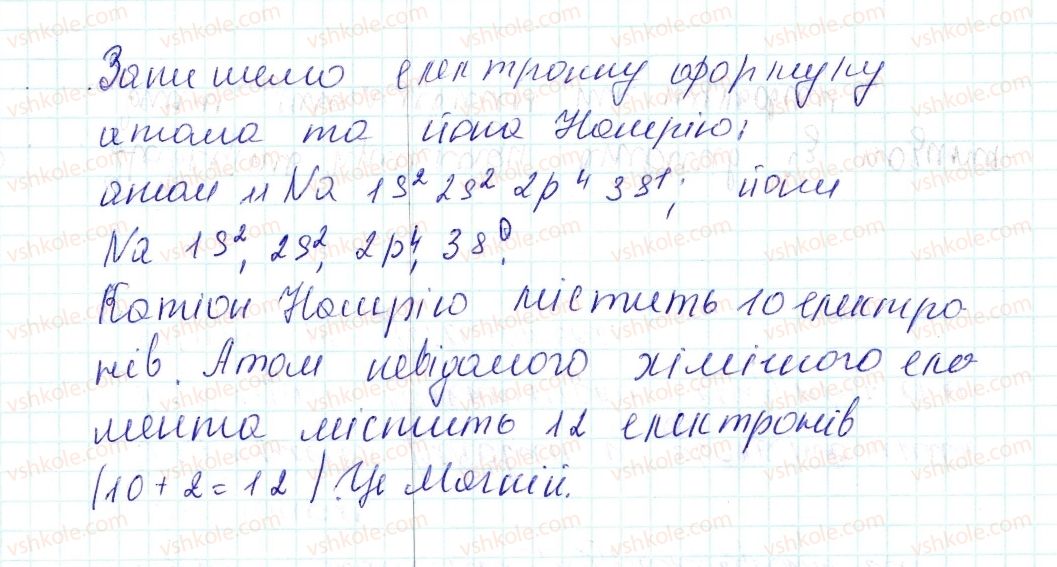 Запишемо електронну формулу
атома та йона Натрію:
атом ₁₁Na 1s² 2s² 2p⁴ 3s¹; йони
Na 1s², 2s², 2p⁴, 3s⁰.
Катіон Натрію містить 10 електро-
нів. Атом невідомого хімічного еле
мента містить 12 електронів
(10 + 2 = 12). Це Магній.